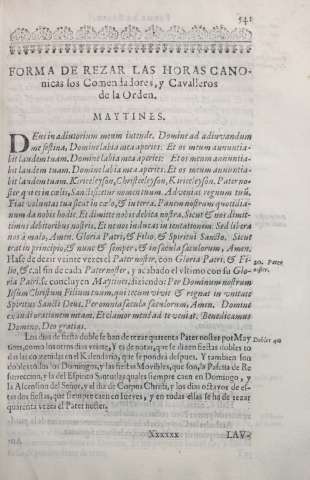 541
FORMA DE REZAR LAS HORAS CANO-
nicas los Comendadores, y Cavalleros
de la Orden.
MAYTINES.
DEus in adiutorium meum intende. Domine ad adiuvandum
me festina, Domine labia mea aperies: Et os meum annuntia-
bit laudem tuam. Domine labia mea aperies: Et os meum annuntia-
bit laudem tuam. Domine labia mea aperies: Et os meum annuntia-
bit laudem tuam. Kirieeleyson, Christeeleyson, Kirieeleyson, Pater no-
ster qui es in cœlis, Sanctificetur nomen tuum. Adveniat regnum tuũ,
Fiat voluntas tua sicut in cœlo, & in terra. Panem nostrum quotidia-
num da nobis hodie. Et dimitte nobis debita nostra, Sicut & nos dimit-
timus debitoribus nostris. Et ne nos inducas in tentationem. Sed libera
nos à malo, Amen. Gloria Patri, & Filio, & Spiritui Sancto. Sicut
erat in principio, & nunc & semper, & in sæcula sæculorum, Amen.
Hase de dezir veinte vezes el Pater noster, con Gloria Patri, & Fi-
20. Pater noster.
lio, &c. al fin de cada Pater noster, y acabado el vltimo con su Glo-
ria Patri, se concluyen Maytines, diziendo: Per Dominum nostrum
Iesum Christum Filium tuum, qui tecum vivit & regnat in vnitate
Spiritus Sancti Deus. Per omnia sæcula sæculorum, Amen. Domine
exaudi orationem meam. Et clamor meus ad te veniat. Benedicamus
Domino. Deo gratias.
Los dias de fiesta doble se han de rezar quarenta Pater noster por May
Dobles que
tines, como los otros dias veinte, Y es de notar, que se dizen fiestas dobles to
das las contenidas en el Kalendario, que se pondrà despues. Y tambien son
dobles todos los Domingos, y las fiestas Movibles, que son, la Pascua de Re-
surreccion, y la del Espiritu Santo, las quales siempre caen en Domingo, y
la Ascension del Señor, y el dia de Corpus Christi, y los dias octavos de es-
tas dos fiestas, que siempre caen en Iueves, y en todas ellas se ha de rezar
quarenta vezes el Pater noster.
Xxxxxx
LAV-